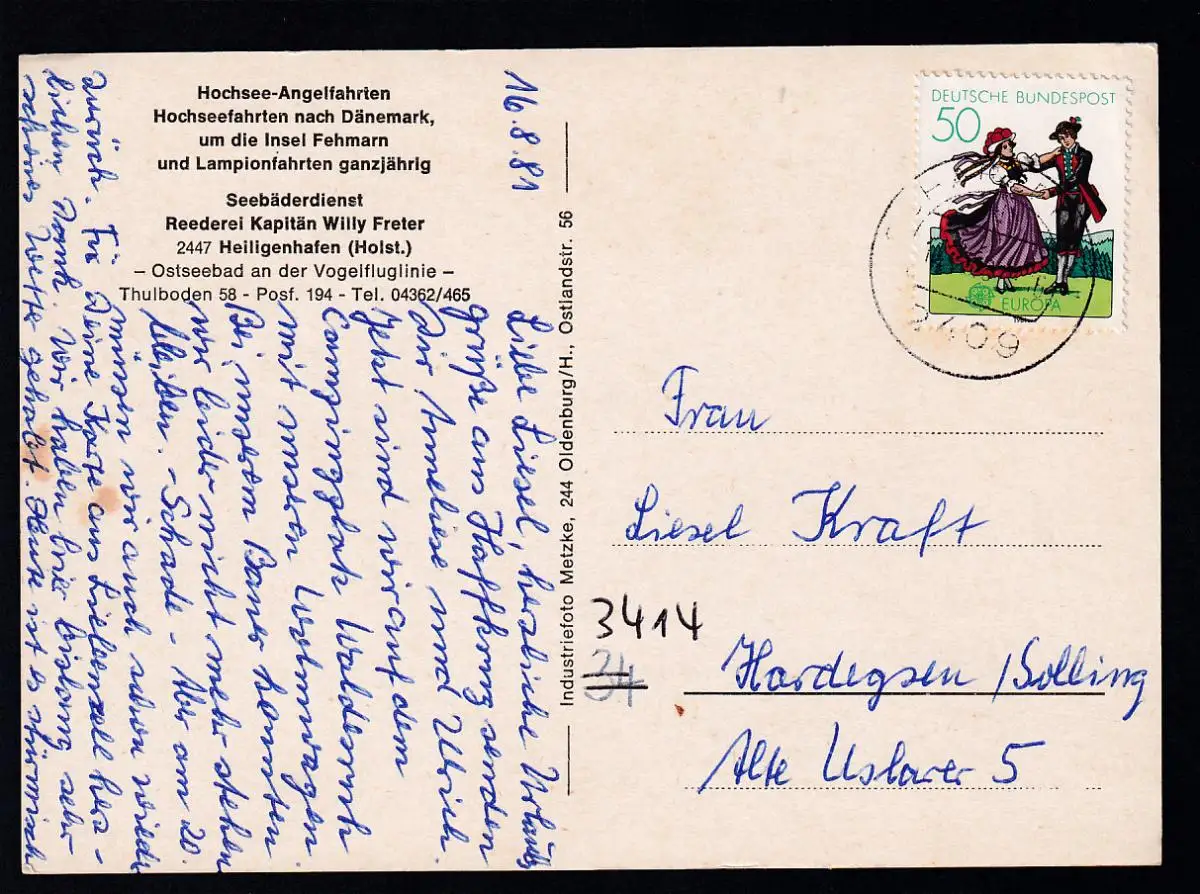 Hochsee-Angelfahrten
Hochseefahrten nach Dänemark,
um die Insel Fehmarn
und Lampionfahrten ganzjährig
Seebäderdienst
Reederei Kapitän Willy Freter
2447 Heiligenhafen (Holst.)
– Ostseebad an der Vogelfluglinie –
Thulboden 58 - Posf. 194 - Tel. 04362/465
16.8.81
Liebe Liesel, herzliche Urlaubs
grüße aus Haffkrug senden
Dir Anneliese und Ulrich.
Jetzt sind wir auf dem
Campingplatz
mit unseren Wohnwagen.
Bei unserem Bauer konnten
wir leider nicht mehr stehen
bleiben. - Schade - Aber am 20.
müssen wir auch schon wieder
zurück. Für Deine Karte aus Liebenzell herz-
lichen Dank. Wir haben hier bislang sehr
schönes Wetter gehabt. Heute ist es stürmisch
Industriefoto Metzke, 244 Oldenburg/H., Ostlandstr. 56
DEUTSCHE BUNDESPOST
50
EUROPA
2409
Frau
Liesel Kraft
3414
34
Hardegsen / Solling
Alte Uslarer 5